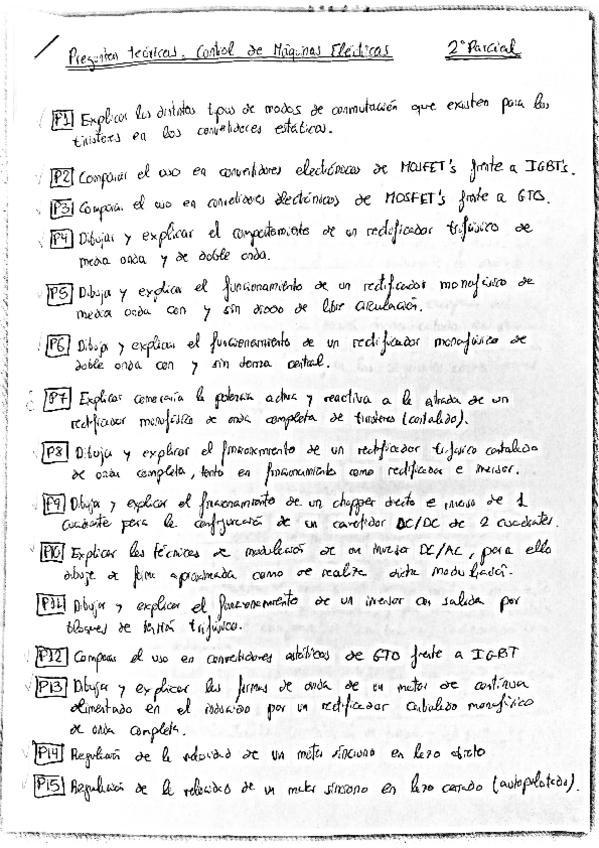 Preguntas teóricas. Control de Máquinas Eléctricas 2º Parcial
P1 Explicar los distintos tipos de modos de conmutación que existen para los
tiristores en los convertidores estáticos.
P2 Comparar el uso en convertidores electrónicos de MOSFET's frente a IGBT's.
P3 Comparar el uso en convertidores electrónicos de MOSFET's frente a GTO.
P4 Dibujar y explicar el comportamiento de un rectificador trifásico de
media onda y de doble onda.
P5 Dibujar y explicar el funcionamiento de un rectificador monofásico de
media onda con y sin diodo de libre circulación.
P6 Dibujar y explicar el funcionamiento de un rectificador monofásico de
doble onda con y sin toma central.
P7 Explicar como varía la potencia activa y reactiva a la entrada de un
rectificador monofásico de onda completa de tiristores (controlado).
P8 Dibujar y explicar el funcionamiento de un rectificador trifásico controlado
de onda completa, tanto en funcionamiento como rectificador e inversor.
P9 Dibujar y explicar el funcionamiento de un chopper directo e inverso de 1
cuadrante para la configuración de un convertidor DC/DC de 2 cuadrantes.
P10 Explicar las técnicas de modulación de un inversor DC/AC, para ello
dibuje de forma aproximada como se realiza dicha modulación.
P11 Dibujar y explicar el funcionamiento de un inversor con salida por
bloques de tensión trifásico.
P12 Comparar el uso en convertidores estáticos de GTO frente a IGBT
P13 Dibujar y explicar las formas de onda de un motor de continua
alimentado en el inducido por un rectificador controlado monofásico
de onda completa.
P14 Regulación de la velocidad de un motor síncrono en lazo abierto
P15 Regulación de la velocidad de un motor síncrono en lazo cerrado (autopilotado).